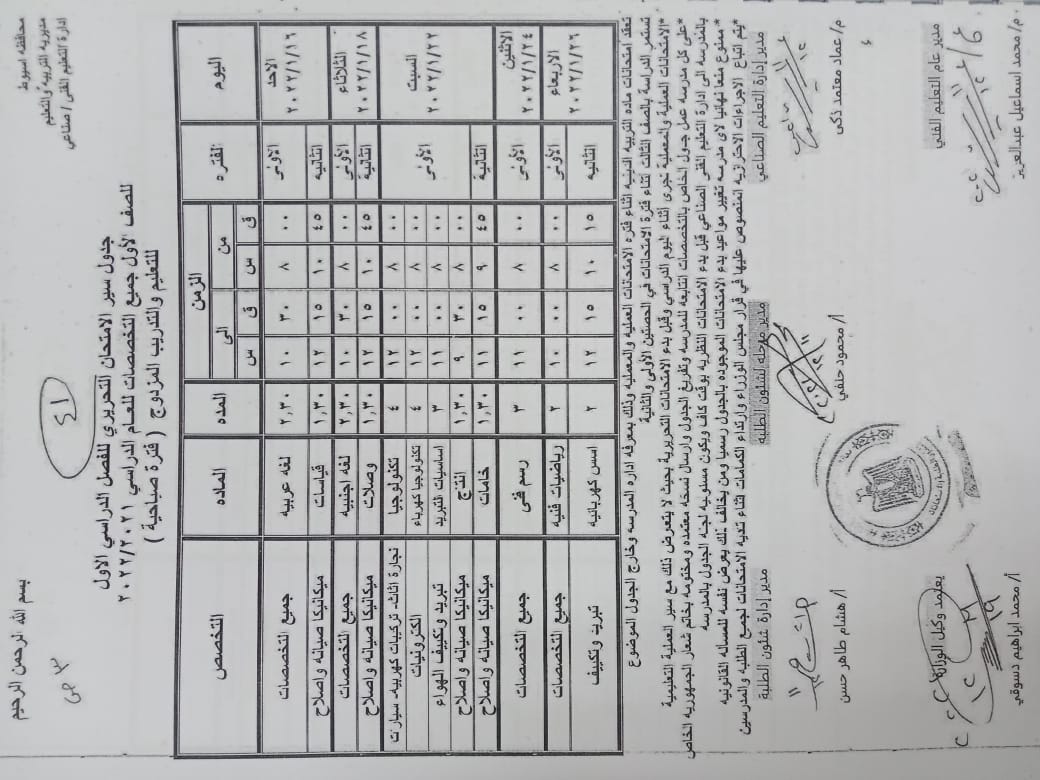 محافظه اسيوط
مديريه التربيه والتعليم
ادارة التعليم الفنى / صناعي
بسم الله الرحمن الرحيم
٤١
ص ٣
جدول سير الامتحان التحريري للفصل الدراسي الاول
للصف الأول جميع التخصصات للعام الدراسي ٢٠٢٢/٢٠٢١
للتعليم والتدريب المزدوج ( فترة صباحية )
اليوم الفتره الزمن المده الماده التخصص
من الى
ق س ق س
الاحد ٢٠٢٢/١/١٦ الأولى ٠٠ ٨ ٣٠ ١٠ ٢,٣٠ لغه عربيه جميع التخصصات
الثانيه ٤٥ ١٠ ١٥ ١٢ ١,٣٠ قياسات ميكانيكا صيانه واصلاح
الثلاثاء ٢٠٢٢/١/١٨ الأولى ٠٠ ٨ ٣٠ ١٠ ٢,٣٠ لغه اجنبيه جميع التخصصات
الثانية ٤٥ ١٠ ١٥ ١٢ ١,٣٠ وصلات ميكانيكا صيانه واصلاح
السبت ٢٠٢٢/١/٢٢ الأولى ٠٠ ٨ ٠٠ ١٢ ٤ تكنولوجيا نجارة اثاث- تركيبات كهربيه- سيارت
٠٠ ٨ ٠٠ ١٢ ٤ تكنولوجيا كهرباء الكترونيات
٠٠ ٨ ٠٠ ١١ ٣ اساسيات التبريد تبريد وتكييف الهواء
٠٠ ٨ ٣٠ ٩ ١,٣٠ انتاج ميكانيكا صيانه واصلاح
الثانية ٤٥ ٩ ١٥ ١١ ١,٣٠ خامات ميكانيكا صيانه واصلاح
الاثنين ٢٠٢٢/١/٢٤ الأولى ٠٠ ٨ ٠٠ ١١ ٣ رسم فنى جميع التخصصات
الاربعاء ٢٠٢٢/١/٢٦ الأولى ٠٠ ٨ ٠٠ ١٠ ٢ رياضيات فنيه جميع التخصصات
الثانيه ١٥ ١٠ ١٥ ١٢ ٢ اسس كهربائيه تبريد وتكييف
تعقد امتحانات ماده التربيه الدينيه اثناء فتره الامتحانات العمليه والمعمليه وذلك بمعرفه اداره المدرسه وخارج الجدول الموضوع
تستمر الدراسة بالصف الثالث اثناء فترة الامتحانات في الحصتين الأولى والثانية
*الامتحانات العملية والمعملية تجرى أثناء اليوم الدراسي وقبل بدء الامتحانات التحريرية بحيث لا يتعرض ذلك مع سير العملية التعليمية
*على كل مدرسه عمل جدول الخاص بالتخصصات التابعة للمدرسه وتفريغ الجدول وارسال نسخه معتمده ومختومه بخاتم شعار الجمهوريه الخاص
بالمدرسه الى ادارة التعليم الفني الصناعي قبل بدء الامتحانات النظريه بوقت كاف ويكون مسئوليه لجنه الجدول بالمدرسه
*ممنوع منعا نهائيا لاى مدرسه تغيير مواعيد بدء الامتحانات الموجوده بالجدول رسميا ومن يخالف ذلك يعرض نفسه للمساله القانونيه
*يتم اتباع الاجراءات الاحترازيه المنصوص عليها في قرار مجلس الوزراء وارتداء الكمامات اثناء تديه الامتحانات لجميع الطلبه والمدرسين
مدير إدارة التعليم الصناعي مدير مرحله الشئون الطلبه مدير إدارة شئون الطلبة
م/ عماد معتمد ذكى أ/ محمود حلقي أ/ هشام طاهر حسن
مدير عام التعليم الفني يعتمد وكيل الوزارة
م/ محمد اسماعيل عبدالعزيز أ/ محمد ابراهيم دسوقي